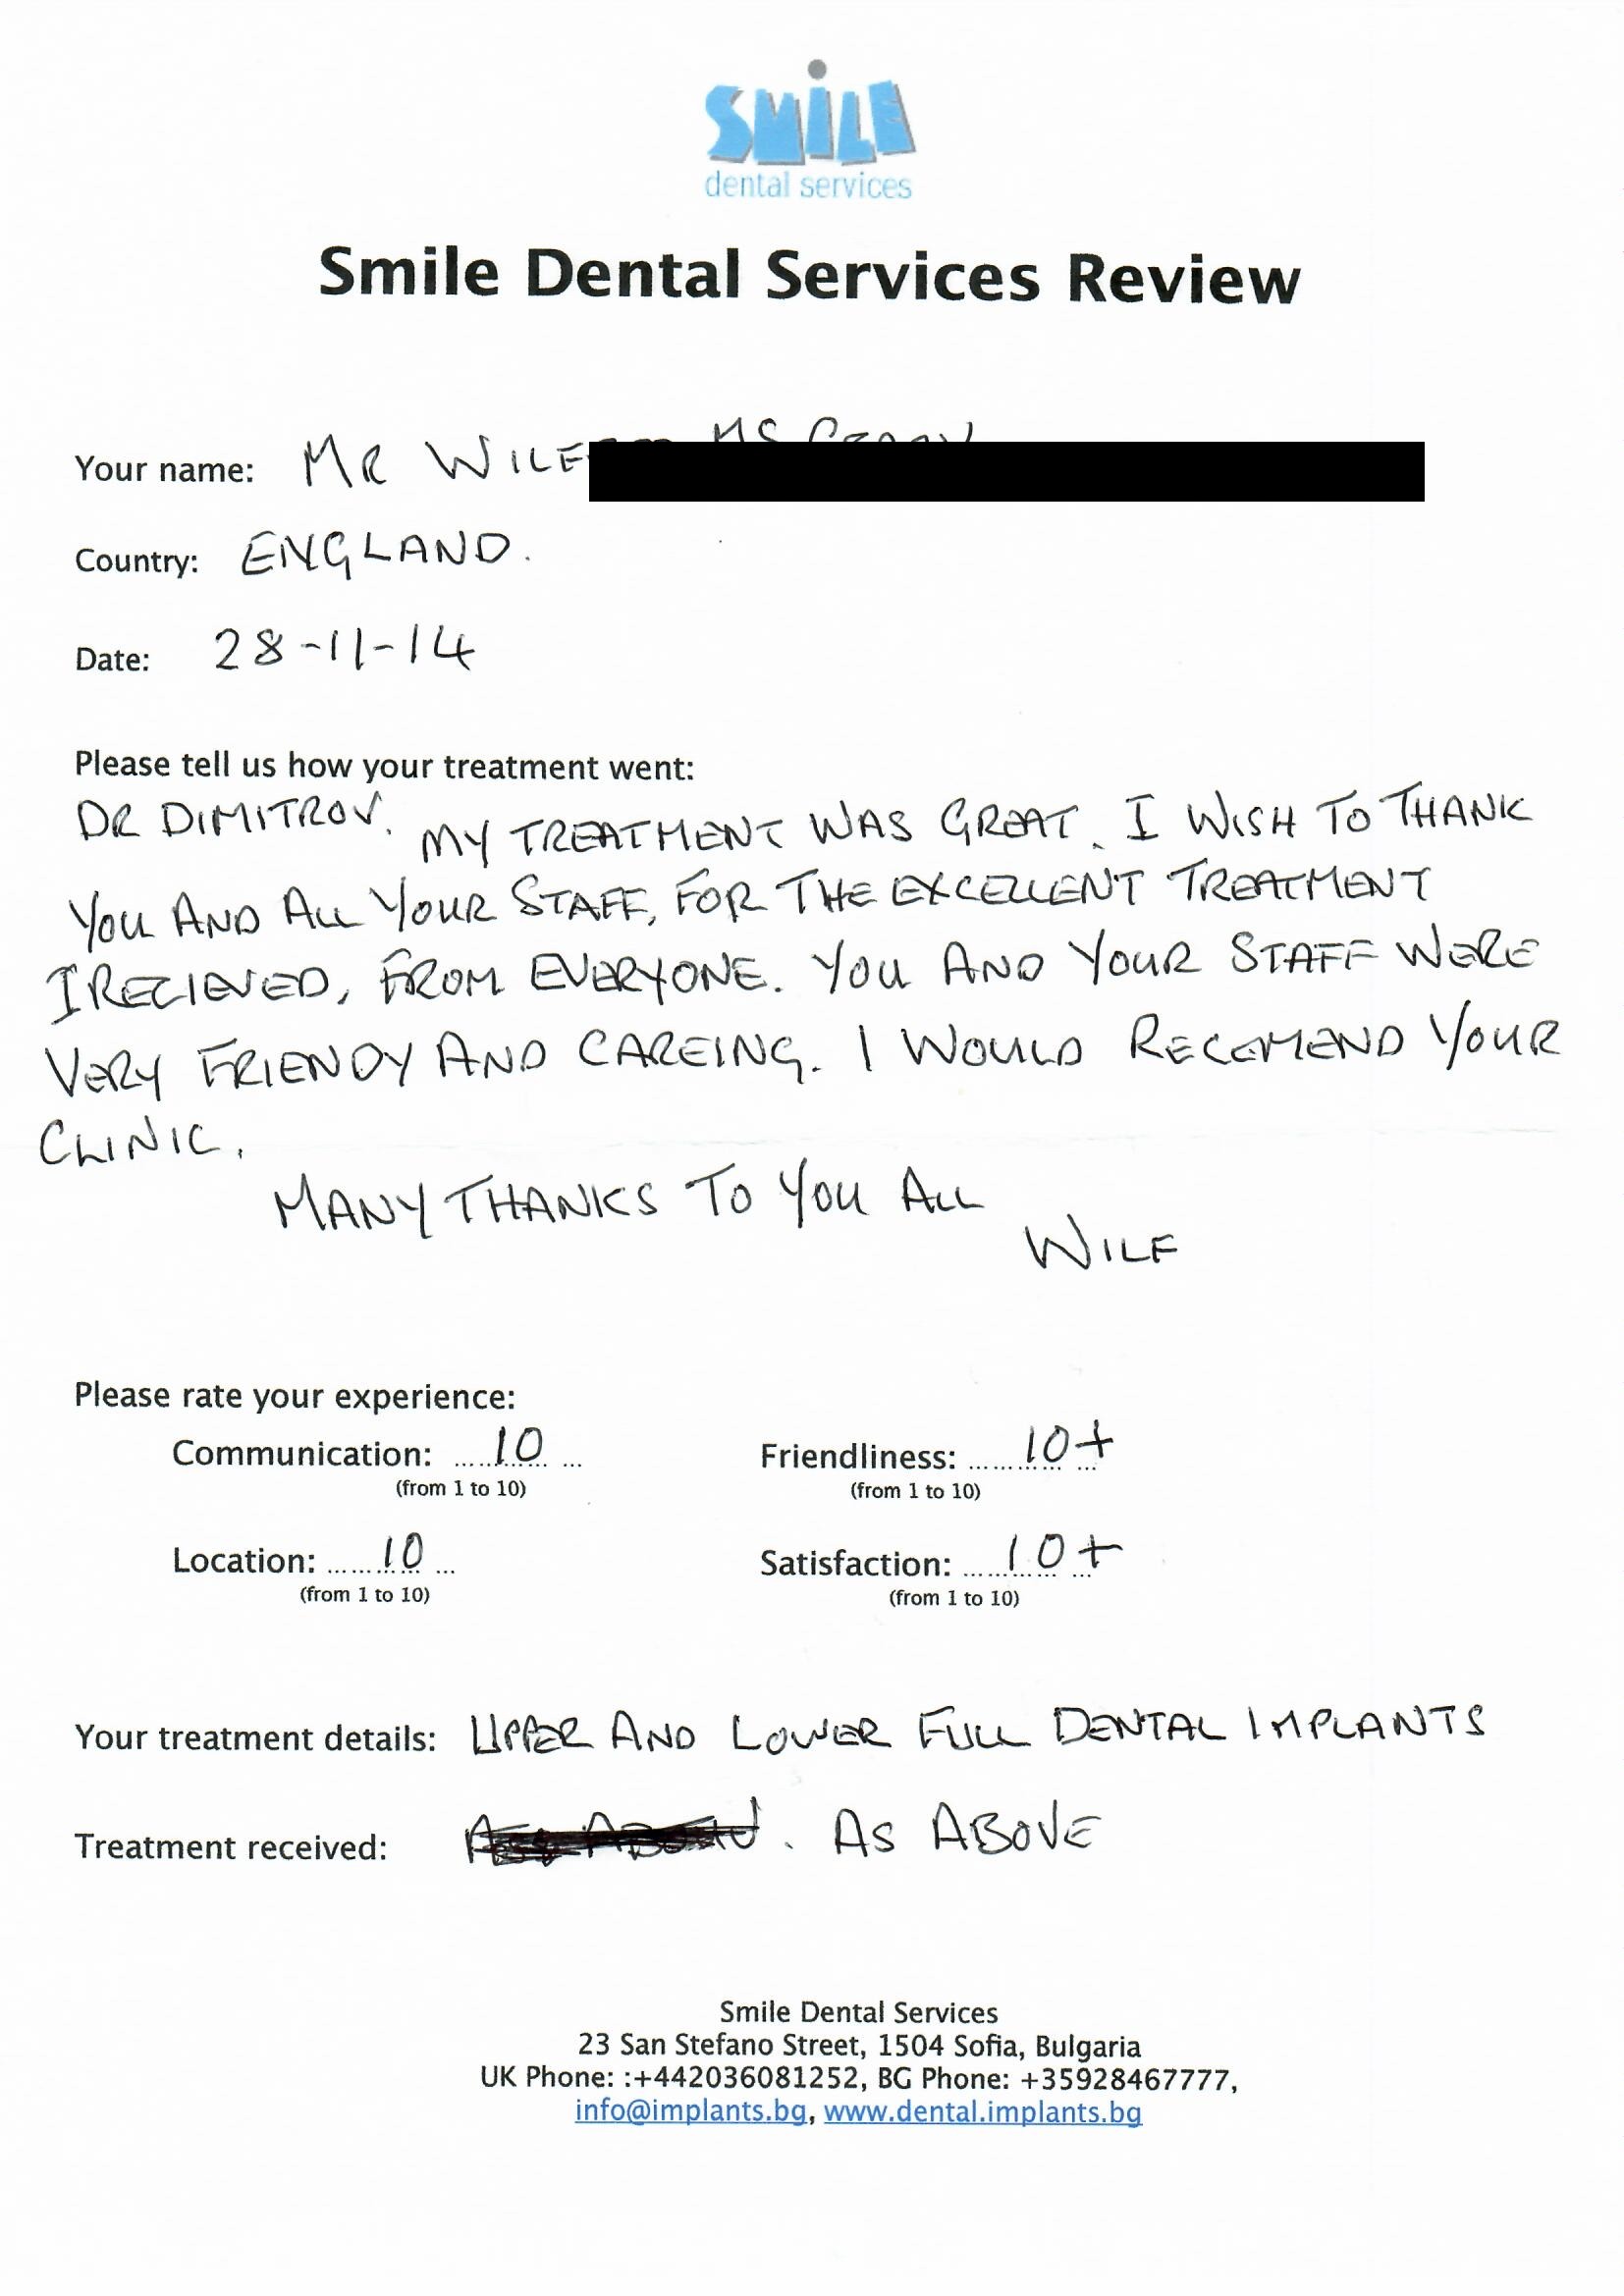 SMILE
dental services
Smile Dental Services Review
Your name: MR WILF
Country: ENGLAND.
Date: 28-11-14
Please tell us how your treatment went:
DR DIMITROV. MY TREATMENT WAS GREAT. I WISH TO THANK
YOU AND ALL YOUR STAFF, FOR THE EXCELLENT TREATMENT
I RECIEVED, FROM EVERYONE. YOU AND YOUR STAFF WERE
VERY FRIENDY AND CAREING. I WOULD RECOMEND YOUR
CLINIC.
MANY THANKS TO YOU ALL
WILF
Please rate your experience:
Communication: 10 Friendliness: 10+
(from 1 to 10) (from 1 to 10)
Location: 10 Satisfaction: 10+
(from 1 to 10) (from 1 to 10)
Your treatment details: UPPER AND LOWER FULL DENTAL IMPLANTS
Treatment received: . AS ABOVE
Smile Dental Services
23 San Stefano Street, 1504 Sofia, Bulgaria
UK Phone: :+442036081252, BG Phone: +35928467777,
info@implants.bg, www.dental.implants.bg